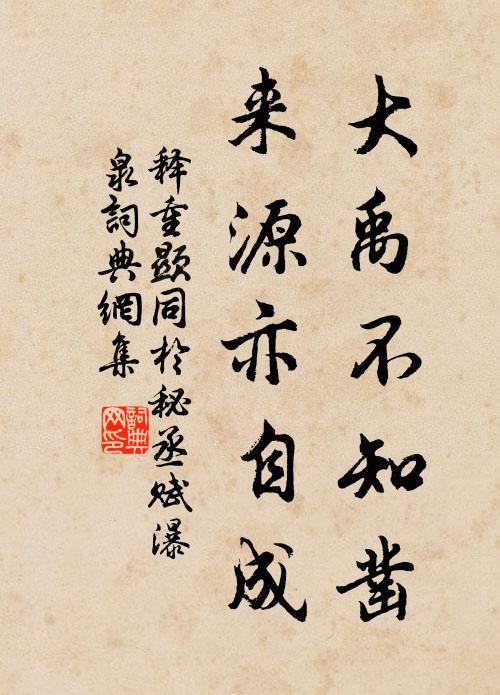 大禹不知凿
来源亦自成
释重显同於秘丞赋瀑
泉詞典網集
詞典网印